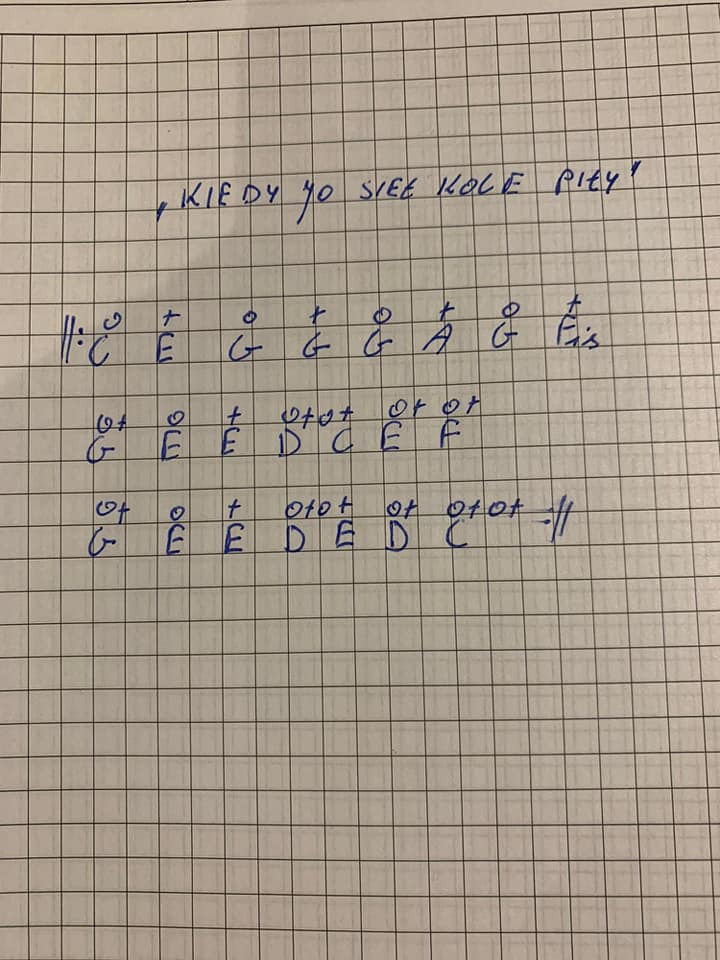 „KIEDY YO SIEŁ KOLE PIŁY"
o + o + o + o +
||: C E G G G A G Fis
o+ o + o+o+ o+ o+
G E E D C E F
o+ o + o+o+ o+ o+o+
G E E D E D C :||